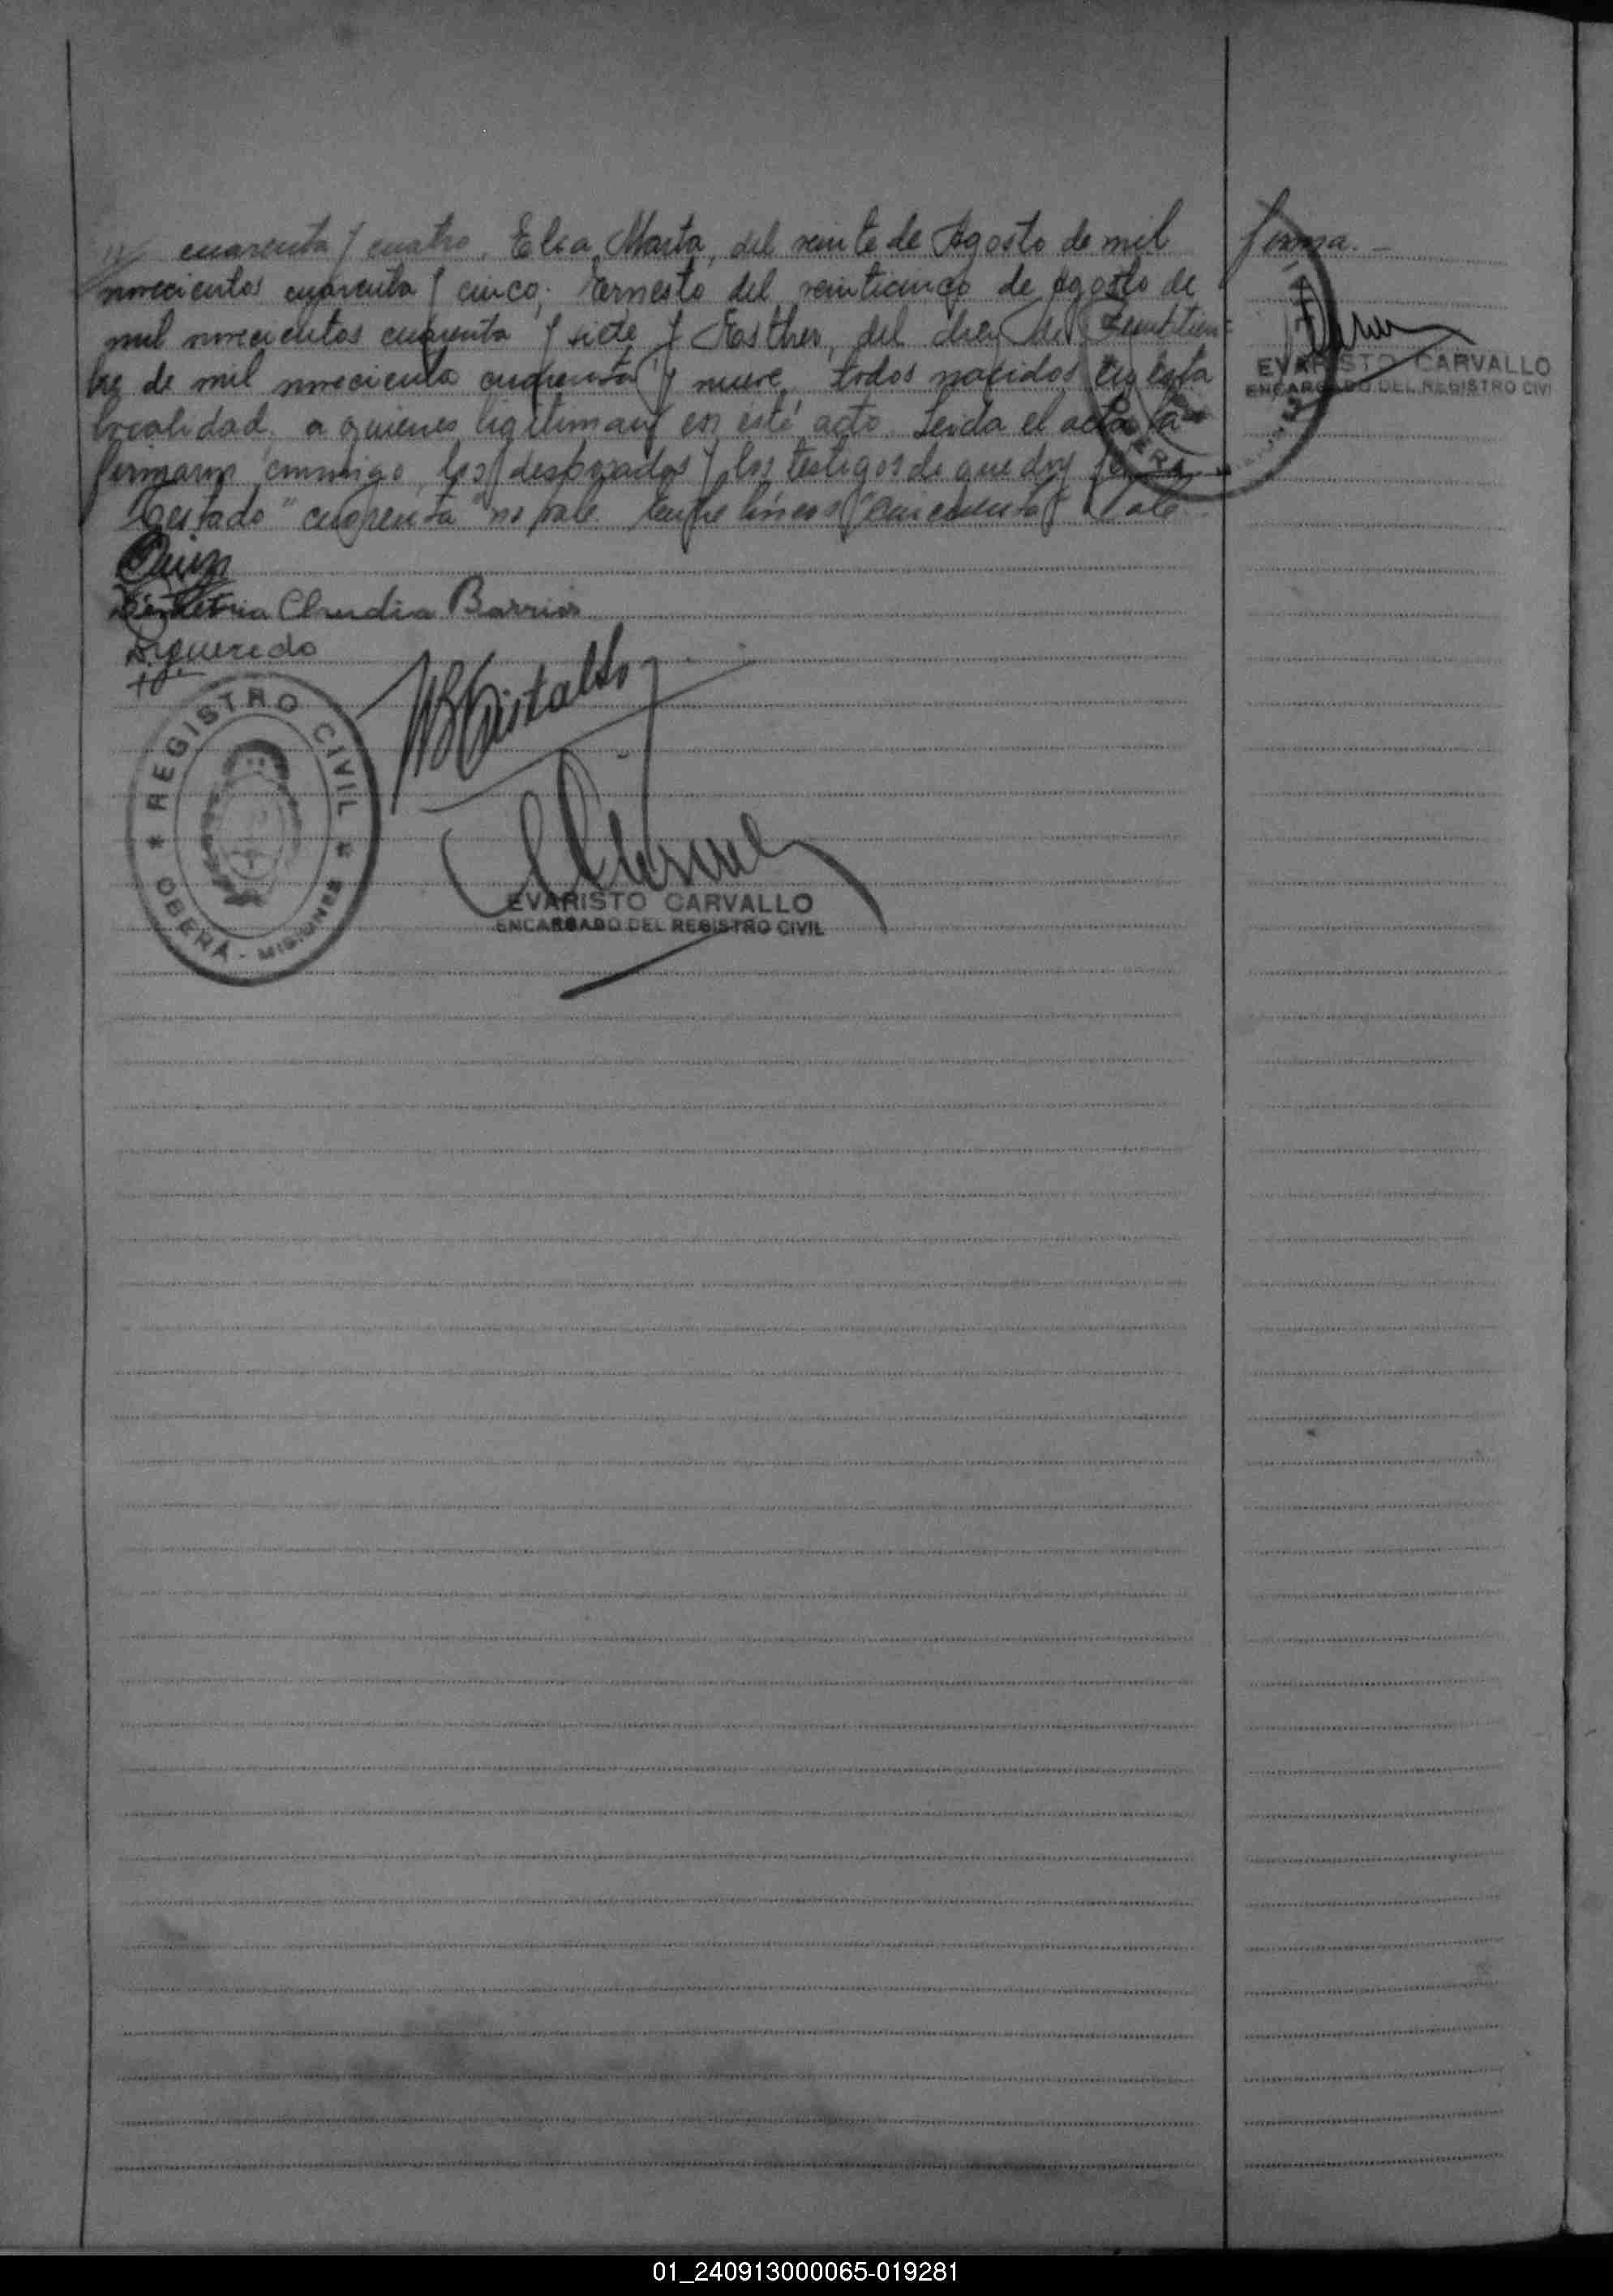 cuarenta y cuatro, Elsa Marta, del veinte de Agosto de mil
novecientos cuarenta y cinco; Ernesto del veinticinco de Agosto de
mil novecientos cuarenta y siete y Easther, del diez de Septiem-
bre de mil novecientos cuarenta y nueve, todos nacidos en esta
localidad, a quienes ligitiman en esté acto. Leida el acta la
firmaron conmigo, los desposados y los testigos de que doy fe
Testado "cuarenta" no vale. Entre líneas Vale.
Claudia Barrios
Figueredo
REGISTRO CIVIL
OBERÁ - MISIONES
EVARISTO CARVALLO
ENCARGADO DEL REGISTRO CIVIL
firma.-
EVARISTO CARVALLO
ENCARGADO DEL REGISTRO CIVI
01_240913000065-019281